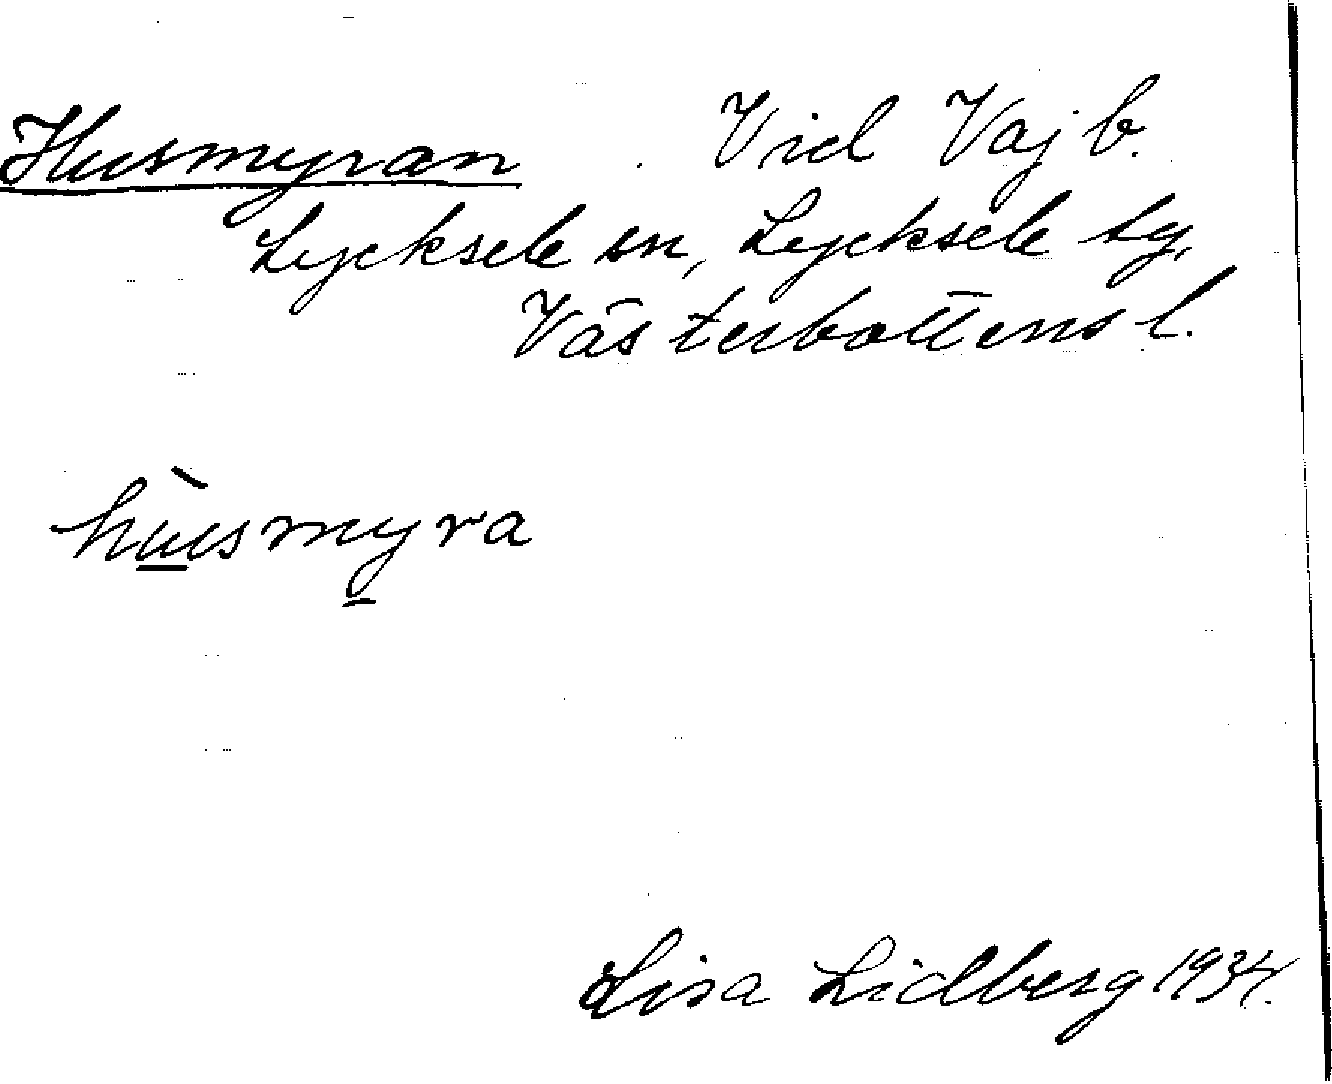 Husmyran . Vid Vaj b.
Lycksele sn, Lycksele tg,
Västerbottens l.
hùsmyra
Lisa Lidberg 1934.